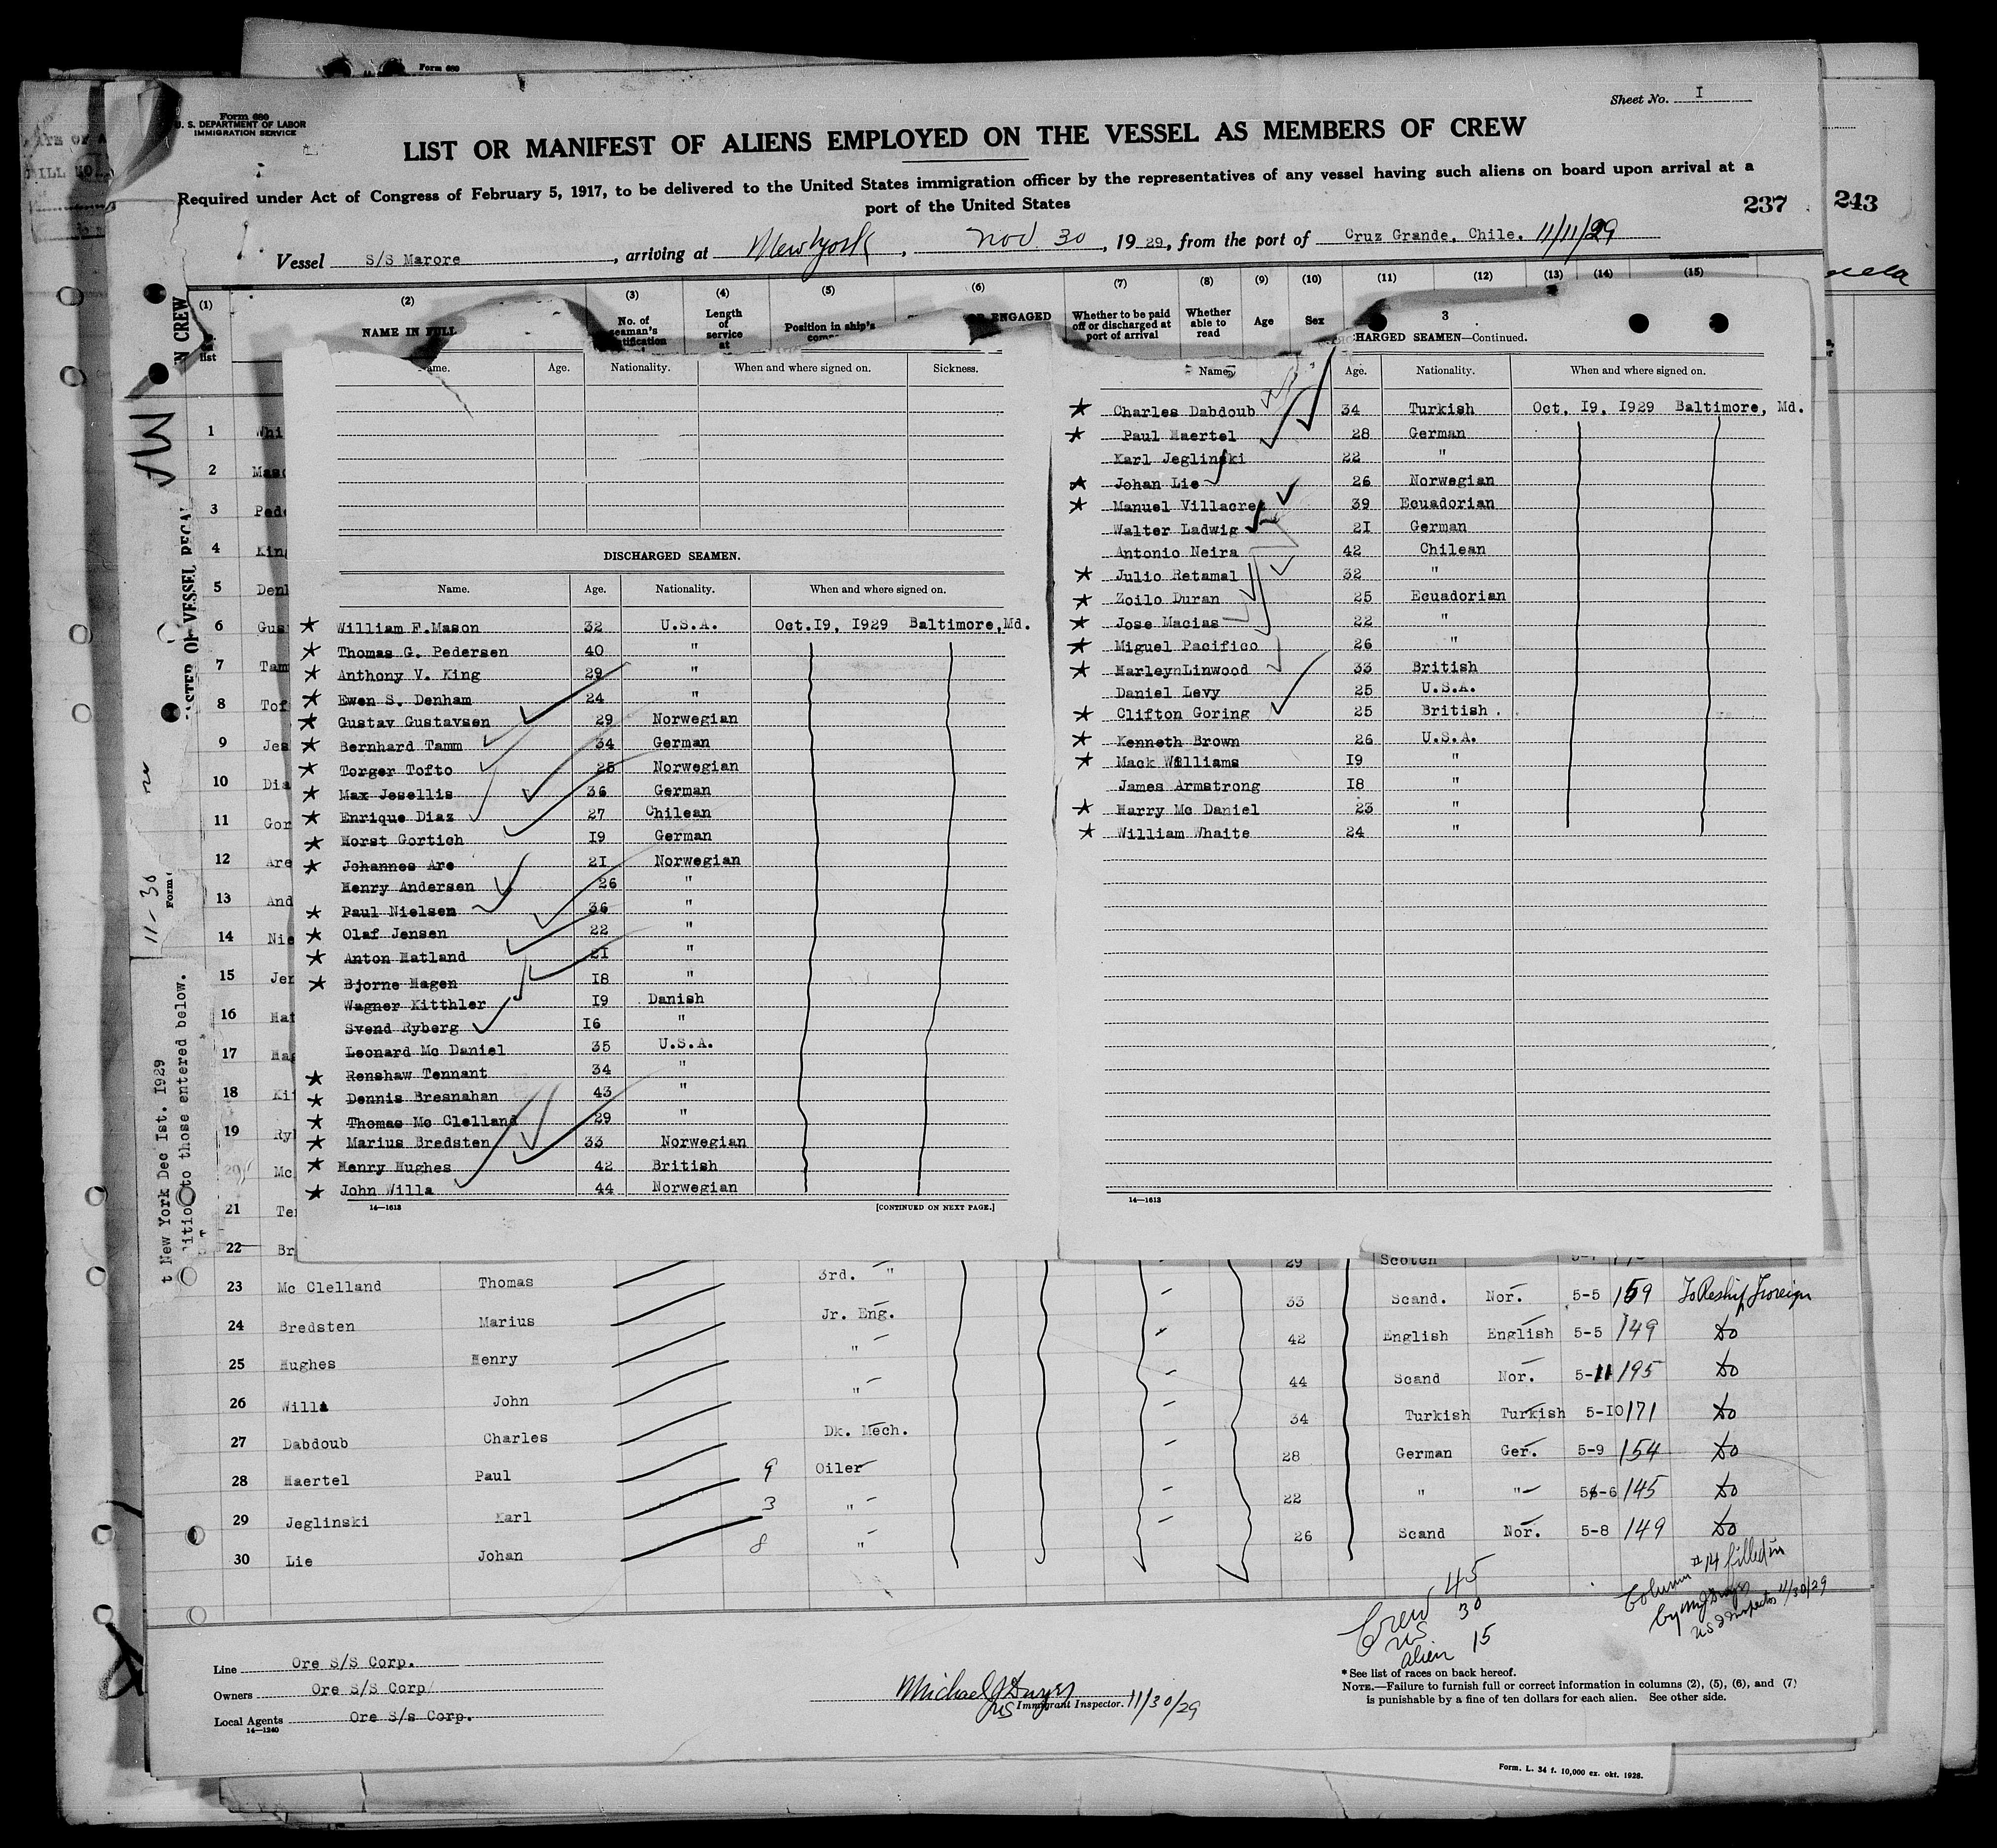 Form 680
Sheet No. I
Form 680
U. S. DEPARTMENT OF LABOR
IMMIGRATION SERVICE
LIST OR MANIFEST OF ALIENS EMPLOYED ON THE VESSEL AS MEMBERS OF CREW
Required under Act of Congress of February 5, 1917, to be delivered to the United States immigration officer by the representatives of any vessel having such aliens on board upon arrival at a
port of the United States
237 243
Vessel S/S Marore, arriving at New York, Nov. 30, 1929, from the port of Cruz Grande, Chile. 11/11/29
(1) (2) (3) (4) (5) (6) (7) (8) (9) (10) (11) (12) (13) (14) (15)
NAME IN FULL
No. of seaman's
Length of service at
Position in ship's
ENGAGED
Whether to be paid off or discharged at port of arrival
Whether able to read
Age
Sex
list
3
HARGED SEAMEN—Continued.
Age. Nationality. When and where signed on. Sickness.
DISCHARGED SEAMEN.
Name. Age. Nationality. When and where signed on.
William F.Mason 32 U.S.A. Oct.19, 1929 Baltimore,Md.
Thomas G. Pedersen 40 "
Anthony V. King 29 "
Ewen S. Denham 24 "
Gustav Gustavsen 29 Norwegian
Bernhard Tamm 34 German
Torger Tofto 25 Norwegian
Max Jesellis 36 German
Enrique Diaz 27 Chilean
Horst Gortich 19 German
Johannes Are 21 Norwegian
Henry Andersen 26 "
Paul Nielsen 36 "
Olaf Jensen 22 "
Anton Hatland 21 "
Bjorne Hagen 18 "
Wagner Kitthler 19 Danish
Svend Ryberg 16 "
Leonard Mc Daniel 35 U.S.A.
Renshaw Tennant 34 "
Dennis Bresnahan 43 "
Thomas Mc Clelland 29 "
Marius Bredsten 33 Norwegian
Henry Hughes 42 British
John Willa 44 Norwegian
14—1613 [CONTINUED ON NEXT PAGE.]
Name Age. Nationality. When and where signed on.
Charles Dabdoub 34 Turkish Oct. 19, 1929 Baltimore, Md.
Paul Haertel 28 German
Karl Jeglinski 22 "
Johan Lie 26 Norwegian
Manuel Villacres 39 Ecuadorian
Walter Ladwig 21 German
Antonio Neira 42 Chilean
Julio Retamal 32 "
Zoilo Duran 25 Ecuadorian
Jose Macias 22 "
Miguel Pacifico 26 "
HarleynLinwood 33 British
Daniel Levy 25 U.S.A.
Clifton Goring 25 British
Kenneth Brown 26 U.S.A.
Mack Williams 19 "
James Armstrong 18 "
Harry Mc Daniel 23 "
William Whaite 24 "
14—1613
1 Whi
2 Maso
3 Pede
4 King
5 Denh
6 Gus
7 Tam
8 Tof
9 Jes
10 Dia
11 Gor
12 Are
13 And
14 Nie
15 Jen
16 Hat
17 Hag
18 Kit
19 Ryb
20 Mc
21 Te
22 Br 29 Scotch
23 Mc Clelland Thomas 3rd. " 33 Scand. Nor. 5-5 159 To Reship Foreign
24 Bredsten Marius Jr. Eng. 42 English English 5-5 149 Do
25 Hughes Henry " 44 Scand Nor. 5-11 195 Do
26 Willa John " 34 Turkish Turkish 5-10 171 Do
27 Dabdoub Charles Dk. Mech. 28 German Ger. 5-9 154 Do
28 Haertel Paul 9 Oiler 22 " " 5-6 145 Do
29 Jeglinski Karl 3 " 26 Scand Nor. 5-8 149 Do
30 Lie Johan 8 "
IN CREW
11-30
t New York Dec 1st. 1929
itio to those entered below.
Crew 45
US 30
alien 15
Column #14 filled in
US I Inspector 11/30/29
Line Ore S/S Corp.
Owners Ore S/S Corp
Local Agents Ore S/s Corp.
14—1240
Michael J Dwyer
US Immigrant Inspector. 11/30/29
*See list of races on back hereof.
NOTE.—Failure to furnish full or correct information in columns (2), (5), (6), and (7)
is punishable by a fine of ten dollars for each alien. See other side.
Form. L. 34 f. 10,000 ex. okt. 1928.